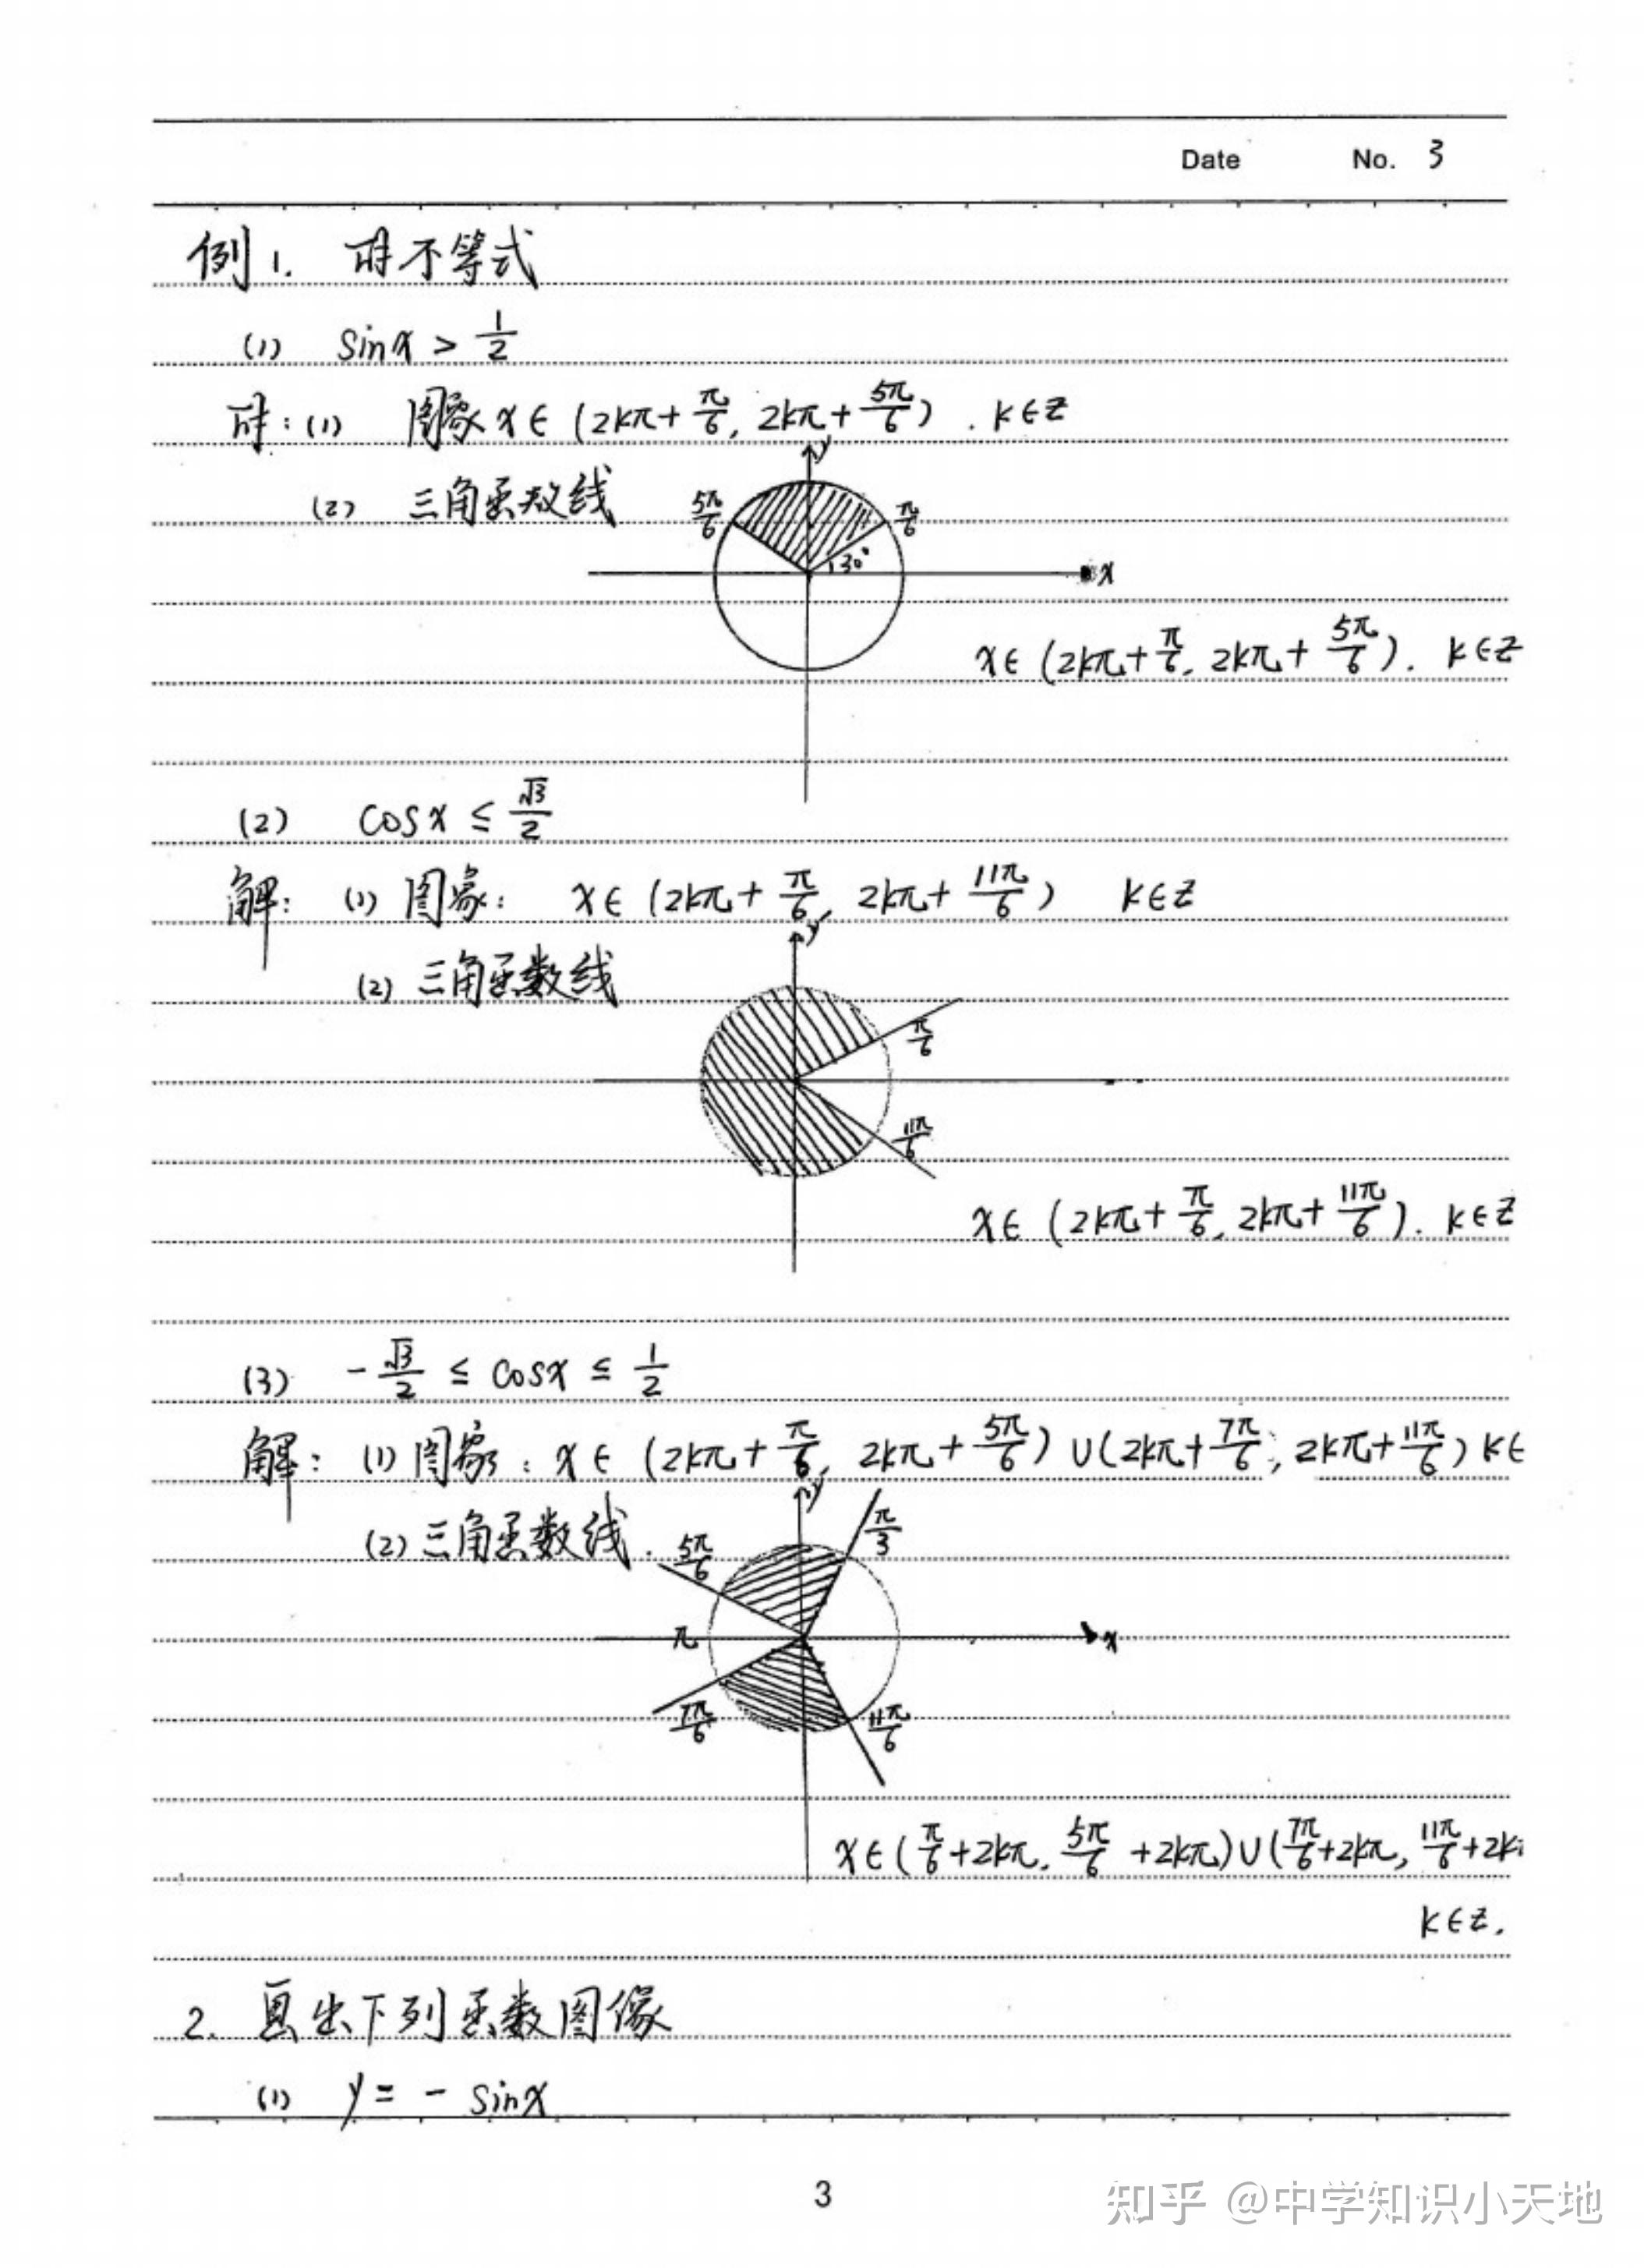 Date No. 3
例1. 解不等式
(1) sinx > 1/2
解:(1) 图象 x∈(2kπ+π/6, 2kπ+5π/6). k∈Z
y
(2) 三角函数线 5π/6 π/6
30° x
x∈(2kπ+π/6, 2kπ+5π/6). k∈Z
(2) cosx ≤ √3/2
解: (1) 图象: x∈(2kπ+π/6, 2kπ+11π/6) k∈Z
y
(2) 三角函数线
π/6
11π/6
x∈(2kπ+π/6, 2kπ+11π/6). k∈Z
(3) -√3/2 ≤ cosx ≤ 1/2
解: (1) 图象: x∈(2kπ+π/6, 2kπ+5π/6)∪(2kπ+7π/6, 2kπ+11π/6) k∈
y
(2) 三角函数线. 5π/6 π/3
π x
7π/6 11π/6
x∈(π/6+2kπ, 5π/6+2kπ)∪(7π/6+2kπ, 11π/6+2k
k∈Z.
2. 画出下列函数图像
(1) y = - sinx
3
知乎 @中学知识小天地